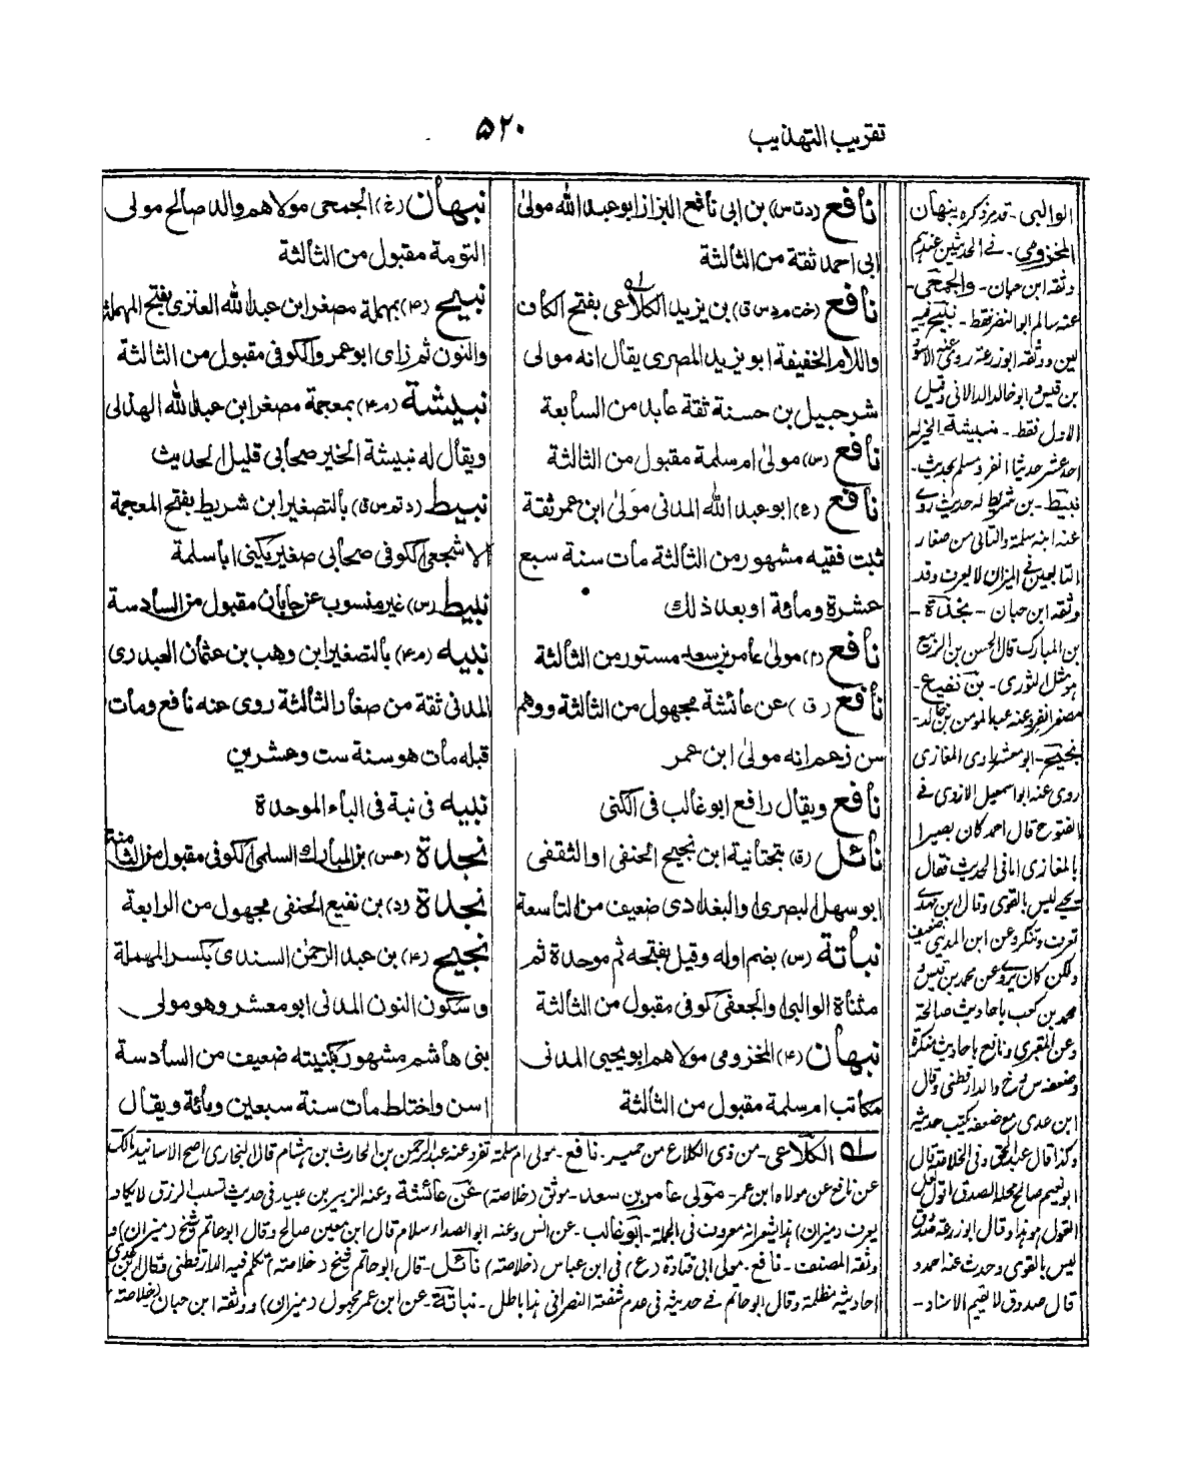 تقريب التهذيب
۵۲۰
نافع (دت س) بن ابى نافع البزاز ابو عبد الله مولىٰ
ابى احمد ثقة من الثالثة
نافع (خت م د س ق) بن يزيد الكلاعى بفتح الكاف
واللام الخفيفة ابو يزيد المصرى يقال انه مولى
شرحبيل بن حسنة ثقة عابد من السابعة
نافع (س) مولىٰ ام سلمة مقبول من الثالثة
نافع (ع) ابو عبد الله المدنى مولىٰ ابن عمر ثقة
ثبت فقيه مشهور من الثالثة مات سنة سبع
عشرة ومائة او بعد ذلك
نافع (م) مولىٰ عامر بن سعد مستور من الثالثة
نافع (ق) عن عائشة مجهول من الثالثة ووهم
من زعم انه مولىٰ ابن عمر
نافع ويقال رافع ابو غالب فى الكنى
نائل (ق) بتحتانية ابن نجيح الحنفى او الثقفى
ابو سهل البصرى والبغدادى ضعيف من التاسعة
نباتة (س) بضم اوله وقيل بفتحه ثم موحدة ثم
مثناة الوالبى والجعفى كوفى مقبول من الثالثة
نبهان (۴) المخزومى مولاهم ابو يحيى المدنى
مكاتب ام سلمة مقبول من الثالثة
نبهان (غ) الجمحى مولاهم والد صالح مولى
التومة مقبول من الثالثة
نبيح (۴) بمهملة مصغر ابن عبد الله العنزى بفتح المهملة
والنون ثم زاى ابو عمر والكوفى مقبول من الثالثة
نبيشة (م۴) بمعجمة مصغر ابن عبد الله الهذلى
ويقال له نبيشة الخير صحابى قليل الحديث
نبيط (د تم س ق) بالتصغير ابن شريط بفتح المعجمة
الاشجعى الكوفى صحابى صغير يكنى ابا سلمة
نبيط (س) غير منسوب عن جابان مقبول من السادسة
نبيه (م۴) بالتصغير ابن وهب بن عثمان العبدرى
المدنى ثقة من صغار الثالثة روى عنه نافع ومات
قبله مات هو سنة ست وعشرين
نبيه فى نبة فى الباء الموحدة
نجدة (عس) بن المبارك السلمى الكوفى مقبول من الثامنة
نجدة (د) بن نفيع الحنفى مجهول من الرابعة
نجيح (۴) بن عبد الرحمٰن السندى بكسر المهملة
وسكون النون المدنى ابو معشر وهو مولى
بنى هاشم مشهور بكنيته ضعيف من السادسة
اسن واختلط مات سنة سبعين ومائة ويقال
الوالبى - قد مر ذكره نبهان
المخزومى - فى الحديثين عندهم
وثقه ابن حبان - والجمحى -
عنه سالم ابو النضر فقط - نبيح فيه
لين ووثقه ابو زرعة روى عنه الاسود
بن قيس وابو خالد الدالانى وقيل
الاول فقط - نبيشة الخير له
احد عشر حديثا انفرد مسلم بحديث -
نبيط - بن شريط له حديث روى
عنه ابنه سلمة والثانى من صغار
التابعين فى الميزان لا يعرف وقد
وثقه ابن حبان - نجدة -
بن المبارك قال الحسن بن الربيع
هو مثل الثورى - بن نفيع -
مصغر انفرد عنه عبد المومن بن خالد -
نجيح - ابو معشر اوى المغازى
روى عنه ابو اسمعيل الازدى فى
الفتوح قال احمد كان بصيرا
بالمغازى اما فى الحديث فقال
يحيى ليس بالقوى وقال ابن مهدى
تعرف وتنكر وعن ابن المدينى ضعيف
ولكن كان يروى عن محمد بن قيس و
محمد بن كعب باحاديث صالحة
وعن المقبرى ونافع باحاديث منكرة
وضعفه س و خ والدارقطنى وقال
ابن عدى مع ضعفه يكتب حديثه
وكذا قال عبد الحق وفى الخلاصة قال
ابو نعيم صالح محله الصدق
القول هو هذا وقال ابو زرعة صدوق
ليس بالقوى وحدث عنه احمد و
قال صدوق لا يقيم الاسناد -
له الكلاعى - من ذى الكلاع من حمير - نافع - مولى ام سلمة تفرد عنه عبد الرحمن بن الحارث بن هشام قال البخارى اصح الاسانيد مالك
عن نافع عن مولاه ابن عمر - مولى عامر بن سعد - موثق (خلاصة) عن عائشة وعنه الزبير بن عبيد فى حديث تسبب الرزق لا يكاد
يعرف (ميزان) هذا يشعر انه معروف فى الجملة - ابو غالب - عن انس وعنه ابو الصداء سلام قال ابن معين صالح وقال ابو حاتم شيخ (ميزان) و
وثقه المصنف - نافع - مولى ابى قتادة (ع) فى ابن عباس (خلاصة) نائل - قال ابو حاتم شيخ (خلاصة) تكلم فيه الدارقطنى وقال ابن عدى
احاديثه مظلمة وقال ابو حاتم فى حديثه فى عدم شفعة النصرانى هذا باطل - نباتة - عن ابن عمر مجهول (ميزان) ووثقه ابن حبان (خلاصة)